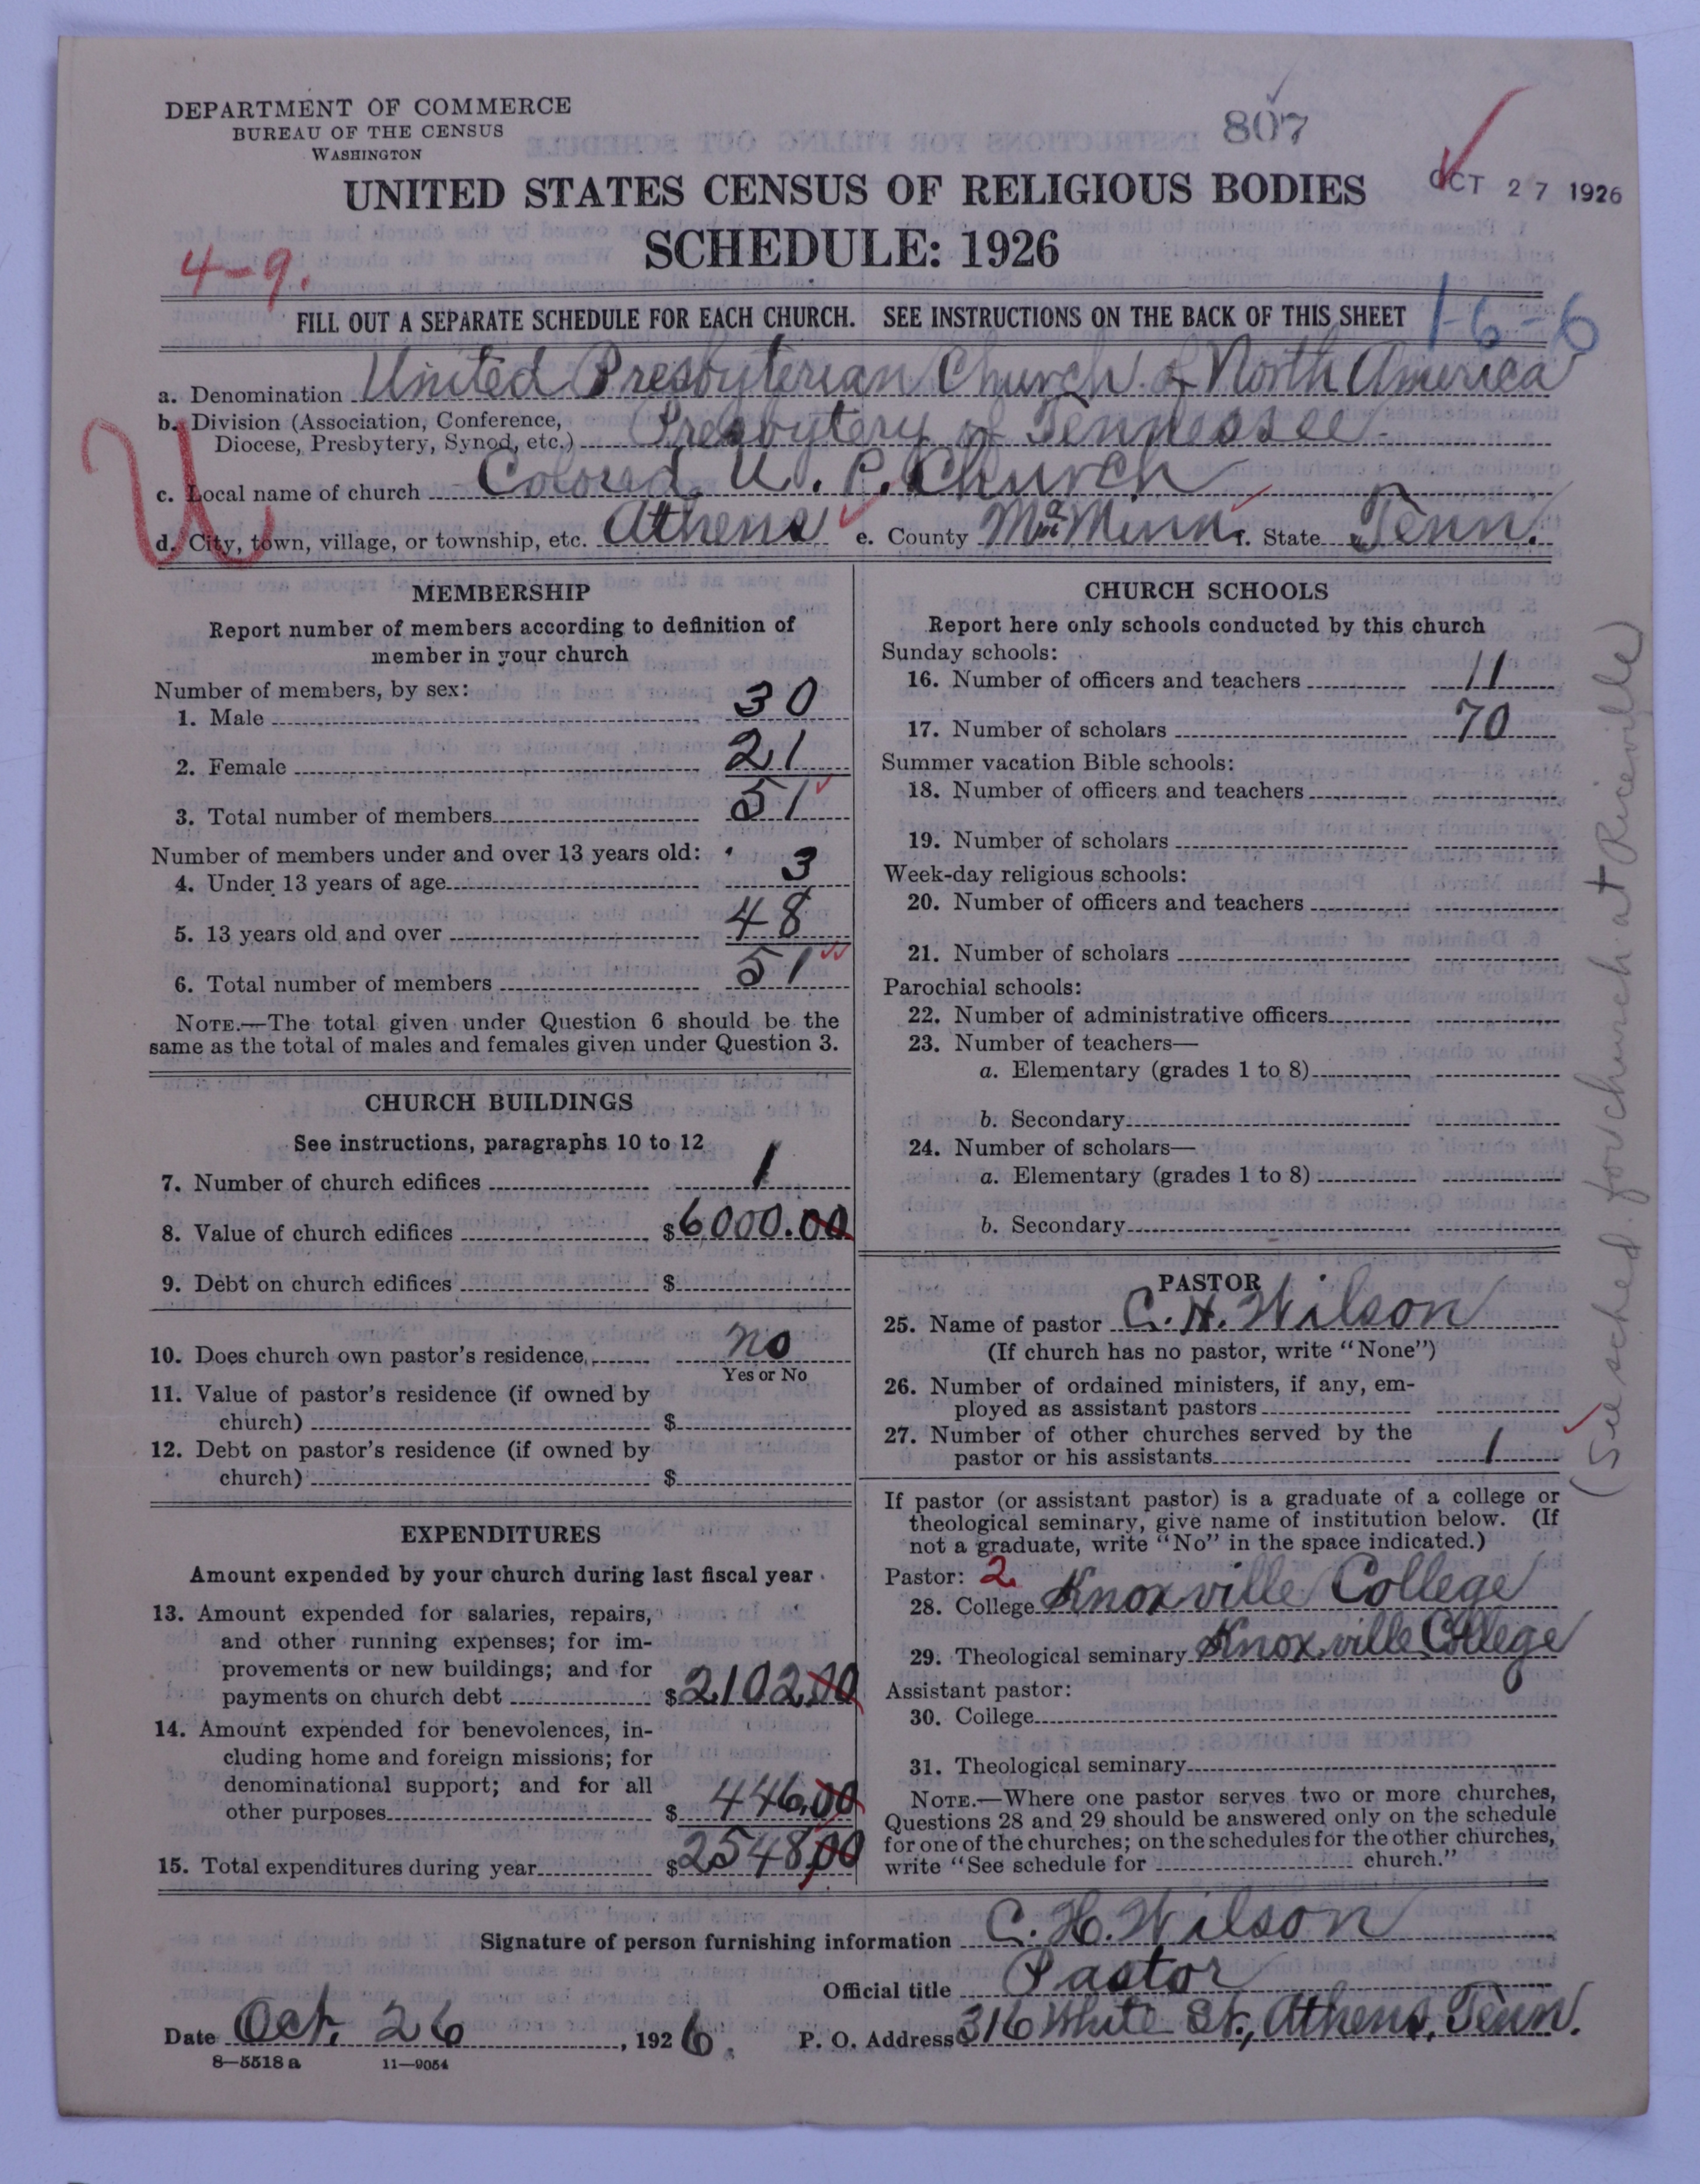 DEPARTMENT OF COMMERCE
BUREAU OF THE CENSUS
WASHINGTON
807
UNITED STATES CENSUS OF RELIGIOUS BODIES
OCT 27 1926
SCHEDULE: 1926
4-9.
FILL OUT A SEPARATE SCHEDULE FOR EACH CHURCH. SEE INSTRUCTIONS ON THE BACK OF THIS SHEET
1-6-6
a. Denomination United Presbyterian Church of North America
b. Division (Association, Conference,
Diocese, Presbytery, Synod, etc.) Presbytery of Tennessee
U
c. Local name of church Colored U. P. Church
d. City, town, village, or township, etc. Athens e. County McMinn f. State Tenn.
MEMBERSHIP
Report number of members according to definition of
member in your church
Number of members, by sex:
1. Male 30
2. Female 21
3. Total number of members 51
Number of members under and over 13 years old:
4. Under 13 years of age 3
5. 13 years old and over 48
6. Total number of members 51
NOTE.—The total given under Question 6 should be the
same as the total of males and females given under Question 3.
CHURCH BUILDINGS
See instructions, paragraphs 10 to 12
7. Number of church edifices 1
8. Value of church edifices $6000.00
9. Debt on church edifices $
10. Does church own pastor's residence no
Yes or No
11. Value of pastor's residence (if owned by
church) $
12. Debt on pastor's residence (if owned by
church) $
EXPENDITURES
Amount expended by your church during last fiscal year
13. Amount expended for salaries, repairs,
and other running expenses; for im-
provements or new buildings; and for
payments on church debt $2102.00
14. Amount expended for benevolences, in-
cluding home and foreign missions; for
denominational support; and for all
other purposes $ 446.00
15. Total expenditures during year $2548.00
CHURCH SCHOOLS
Report here only schools conducted by this church
Sunday schools:
16. Number of officers and teachers 11
17. Number of scholars 70
Summer vacation Bible schools:
18. Number of officers and teachers
19. Number of scholars
Week-day religious schools:
20. Number of officers and teachers
21. Number of scholars
Parochial schools:
22. Number of administrative officers
23. Number of teachers—
a. Elementary (grades 1 to 8)
b. Secondary
24. Number of scholars—
a. Elementary (grades 1 to 8)
b. Secondary
PASTOR
25. Name of pastor C. H. Wilson
(If church has no pastor, write "None")
26. Number of ordained ministers, if any, em-
ployed as assistant pastors
27. Number of other churches served by the
pastor or his assistants 1
If pastor (or assistant pastor) is a graduate of a college or
theological seminary, give name of institution below. (If
not a graduate, write "No" in the space indicated.)
Pastor: 2
28. College Knoxville College
29. Theological seminary Knoxville College
Assistant pastor:
30. College
31. Theological seminary
NOTE.—Where one pastor serves two or more churches,
Questions 28 and 29 should be answered only on the schedule
for one of the churches; on the schedules for the other churches,
write "See schedule for church."
(See sched. for church at Riceville)
Signature of person furnishing information C. H. Wilson
Official title Pastor
Date Oct. 26, 1926. P. O. Address 316 White St., Athens, Tenn.
8—5518 a 11—9054